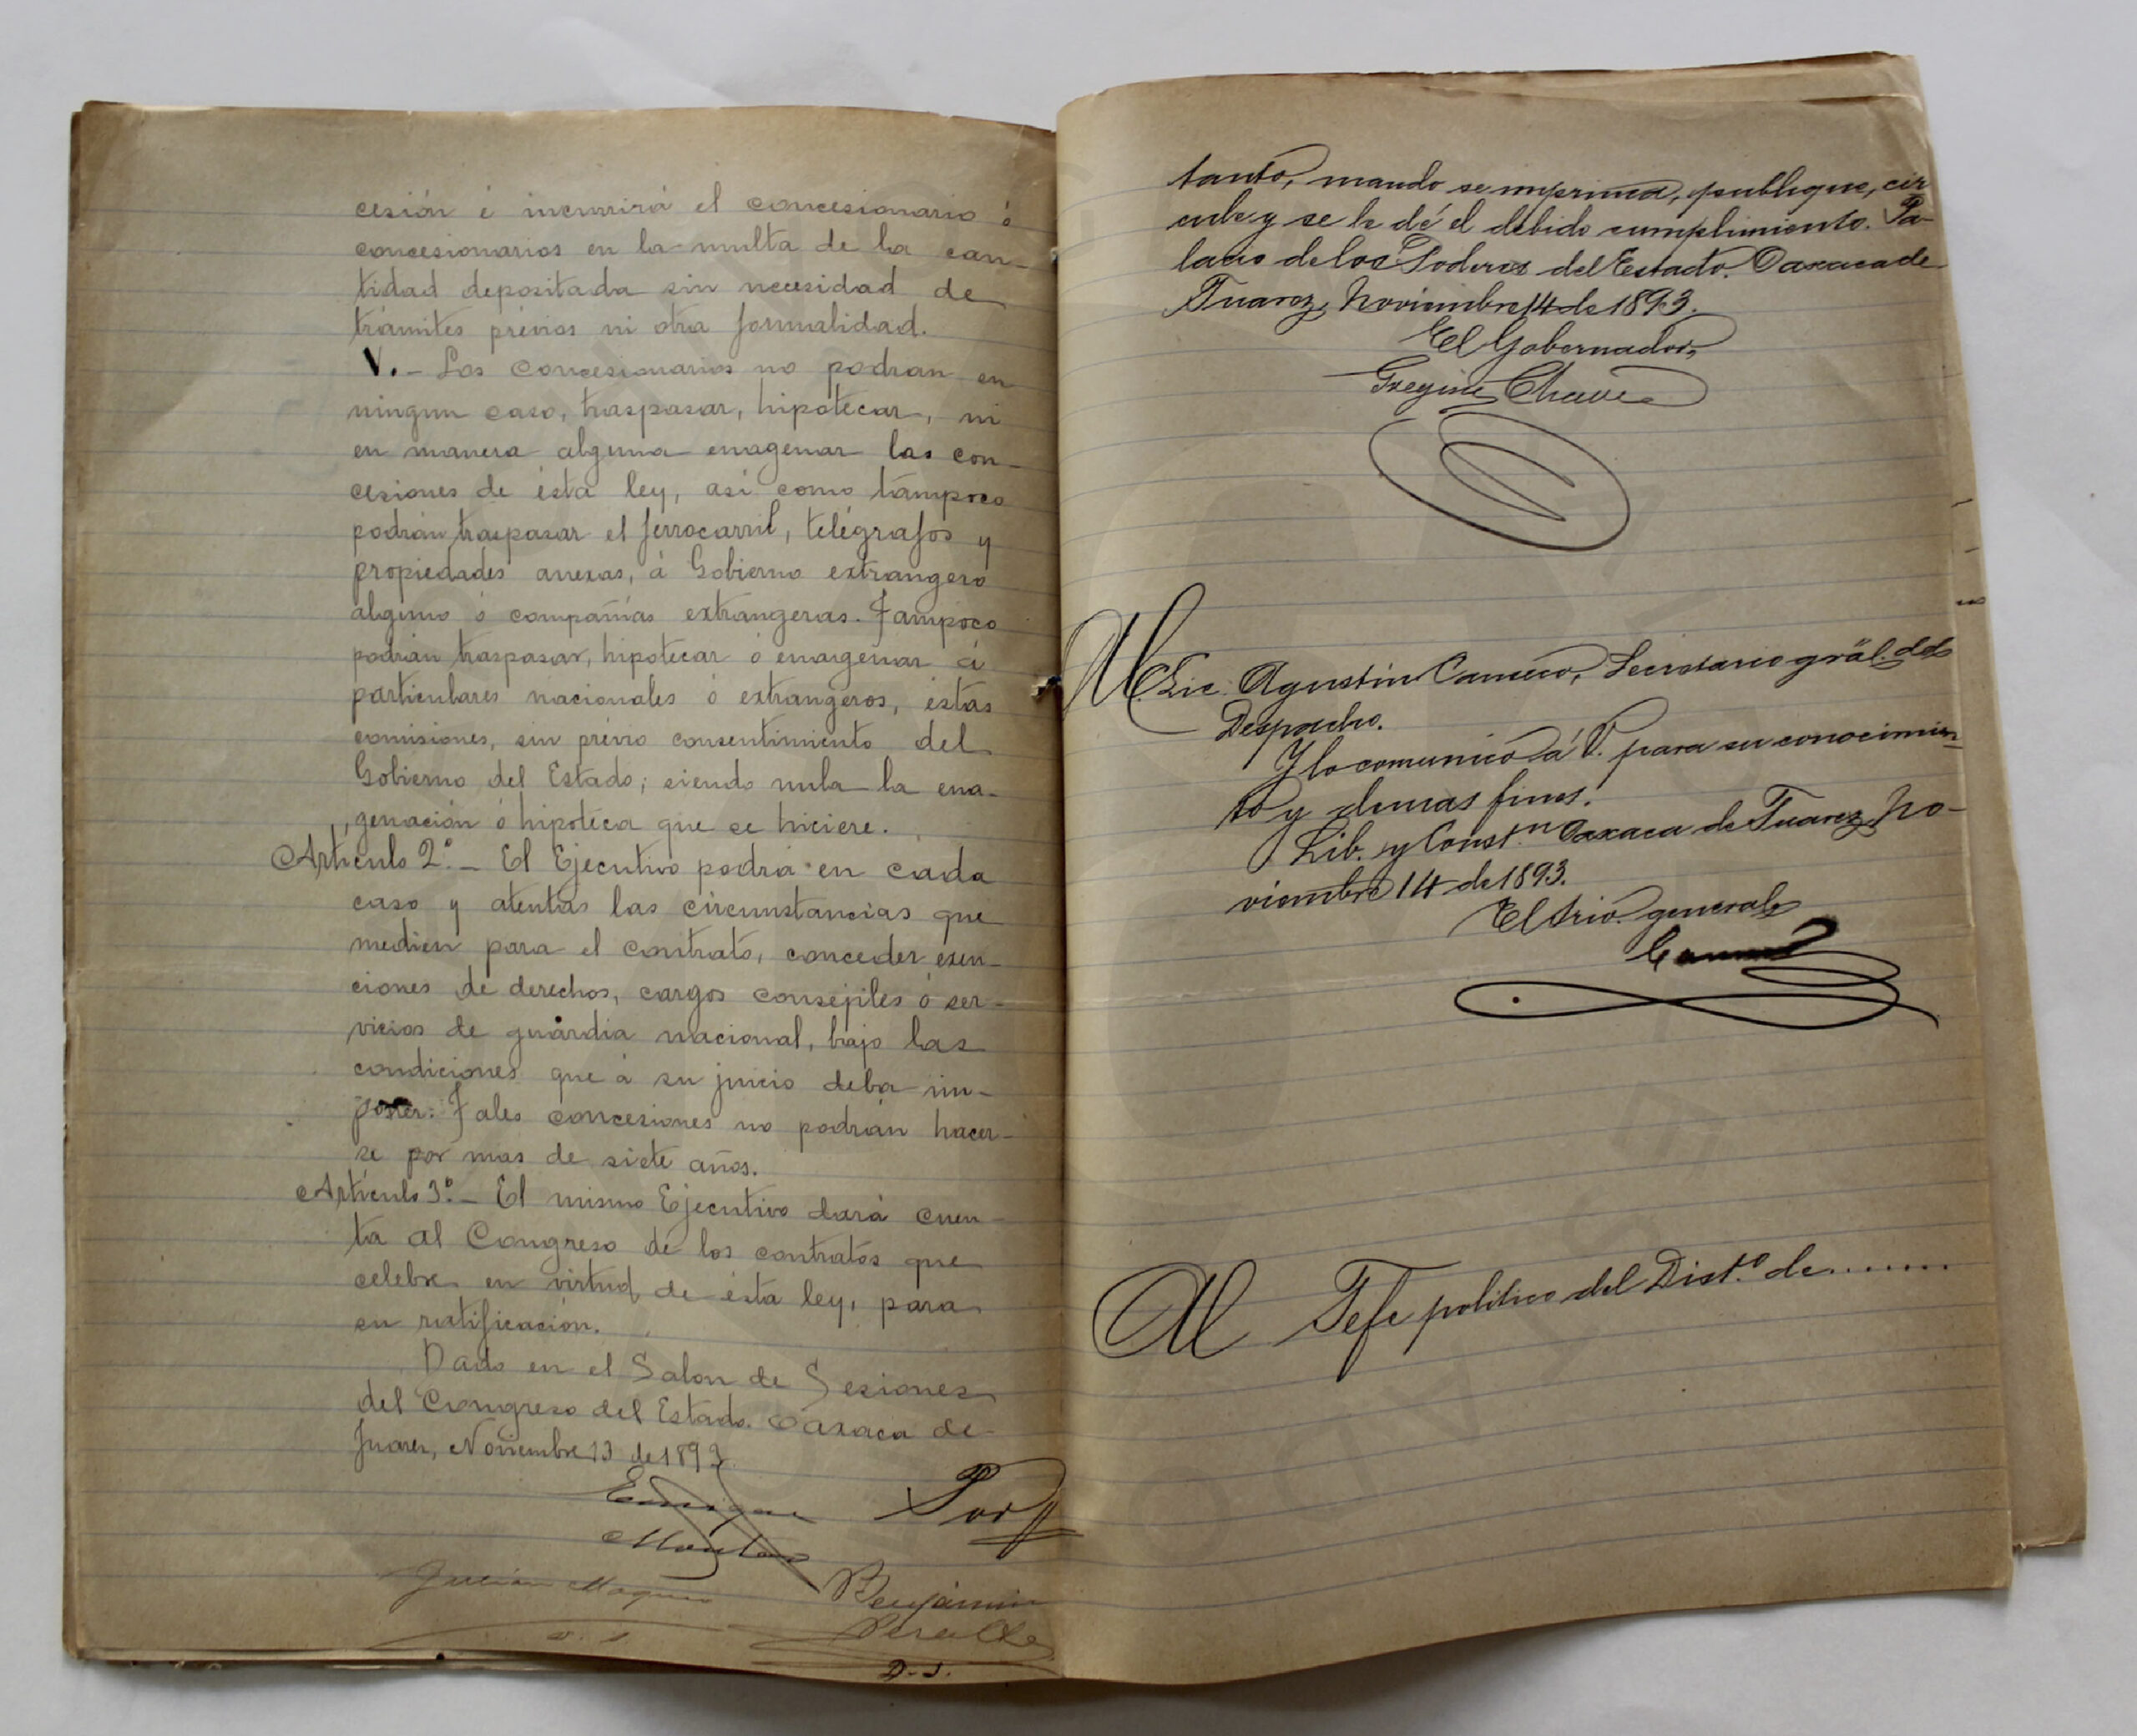 cesión é incurrirá el concesionario ó
concesionarios en la multa de la can-
tidad depositada sin necesidad de
trámites prévios ni otra formalidad.
V.- Los concesionarios no podran en
ningun caso, traspasar, hipotecar, ni
en manera alguna enagenar las con-
cesiones de ésta ley, asi como tampoco
podrán traspasar el ferrocarril, telégrafos y
propiedades anexas, á Gobierno extrangero
alguno ó compañias extrangeras. Tampoco
podrán traspasar, hipotecar ó enargenar á
particulares nacionales ó extrangeros, éstas
comisiones, sin prévio consentimiento del
Gobierno del Estado; siendo nula la ena-
genación ó hipoteca que se hiciere.
Artículo 2º.- El Ejecutivo podrá en cada
caso y atentas las circunstancias que
medien para el contrato, conceder exen-
ciones de derechos, cargos consejiles ó ser-
vicios de guardia nacional, bajo las
condiciones que á su juicio deba im-
poner. Tales concesiones no podrán hacer-
se por mas de siete años.
Artículo 3º.- El mismo Ejecutivo dará cuen-
ta al Congreso de los contratos que
celebre en virtud de ésta ley, para
su ratificación.
Dado en el Salon de Sesiones
del Congreso del Estado. Oaxaca de
Juarez, Noviembre 13 de 1893.
Enrique
Benjamin
D.S.
tanto, mando se imprima, publique, cir
cule y se le dé el debido cumplimiento. Pa-
lacio de los Poderes del Estado. Oaxaca de
Juarez, Noviembre 14 de 1893.
El Gobernador,
Gregorio Chavez
Al C. Lic. Agustin Canseco, Secretario gräl. del
Despacho.
Y lo comunico á V. para su conocimien
to y demas fines.
Lib. y Const.n Oaxaca de Juarez, No-
viembre 14 de 1893.
El Srio. general
Canseco
Al Jefe politico del Dist.o de........